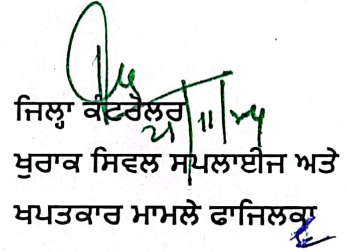 ਜਿਲ੍ਹਾ ਕੰਟਰੋਲਰ
21/11/24
ਖੁਰਾਕ ਸਿਵਲ ਸਪਲਾਈਜ ਅਤੇ
ਖਪਤਕਾਰ ਮਾਮਲੇ ਫਾਜਿਲਕਾ